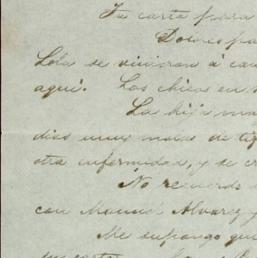 Tu carta para
Dolores pa
Lola se vinieron á ca
aquí. Las chicas en
La hija ma
dias muy malos de ti
otra enfermedad, y se cr
No recuerdo
con Manuel Alvarez y
Me supongo que